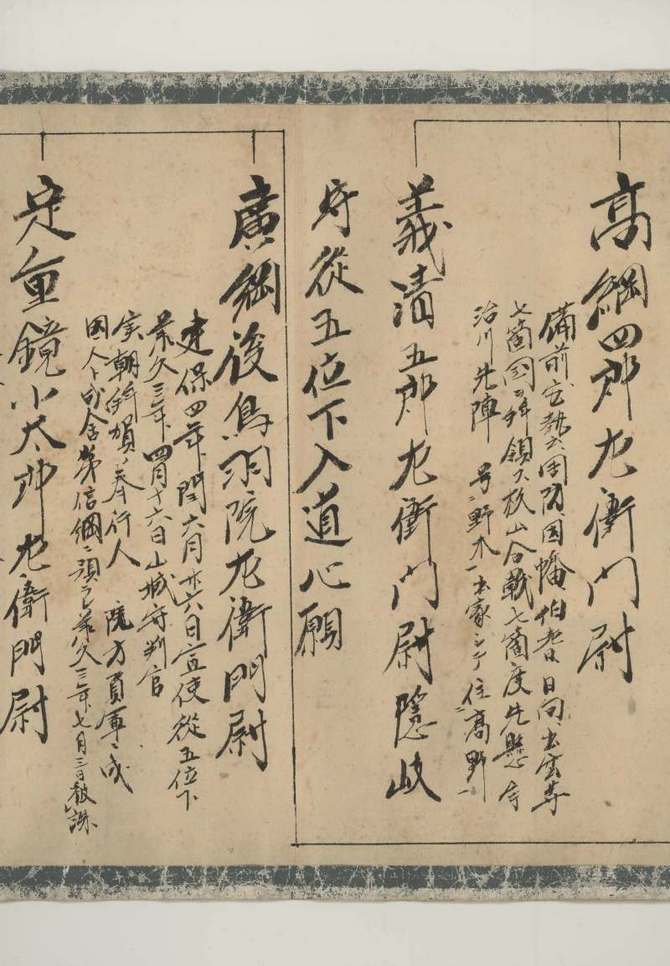 高綱四郎左衛門尉
備前安藝周防因幡伯耆日向出雲等
七箇國ヲ拜領石橋山合戦七箇度先懸
治川先陣 号野木 出家シテ住高野
義清五郎左衛門尉隱岐
守從五位下入道心願
廣綱後鳥羽院左衛門尉
建保四年閏六月廿六日宣使從五位下
承久三年四月十六日山城守判官
実朝拜賀ノ奉行人 院方員軍成
囚人下成舎弟信綱預承久三年七月三日被誅
定重鏡小太郎左衛門尉